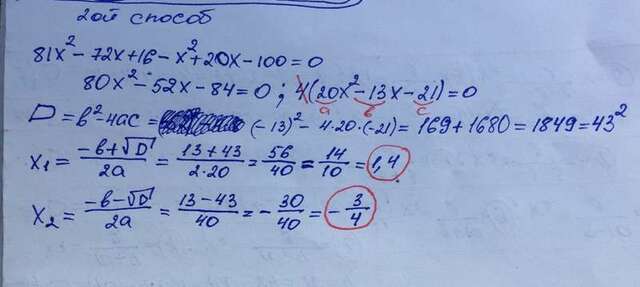 2ой способ
81x² - 72x + 16 - x² + 20x - 100 = 0
80x² - 52x - 84 = 0 ; 4(20x² - 13x - 21) = 0
a b c
D = b² - 4ac = (-13)² - 4·20·(-21) = 169 + 1680 = 1849 = 43²
x₁ = (-b + √D)/2a = (13 + 43)/(2·20) = 56/40 = 14/10 = 1,4
x₂ = (-b - √D)/2a = (13 - 43)/40 = -30/40 = -3/4